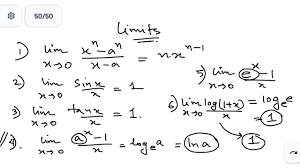 50/50
Limits
1) lim x→0 xⁿ-aⁿ/x-a = n.xⁿ⁻¹
2) lim x→0 sinx/x = 1
3) lim x→0 tanx/x = 1.
4). lim x→0 aˣ-1/x = logₑa = lna
5) lim x→0 eˣ-1/x = logₑe = 1
6) lim x→0 log(1+x)/x → 1